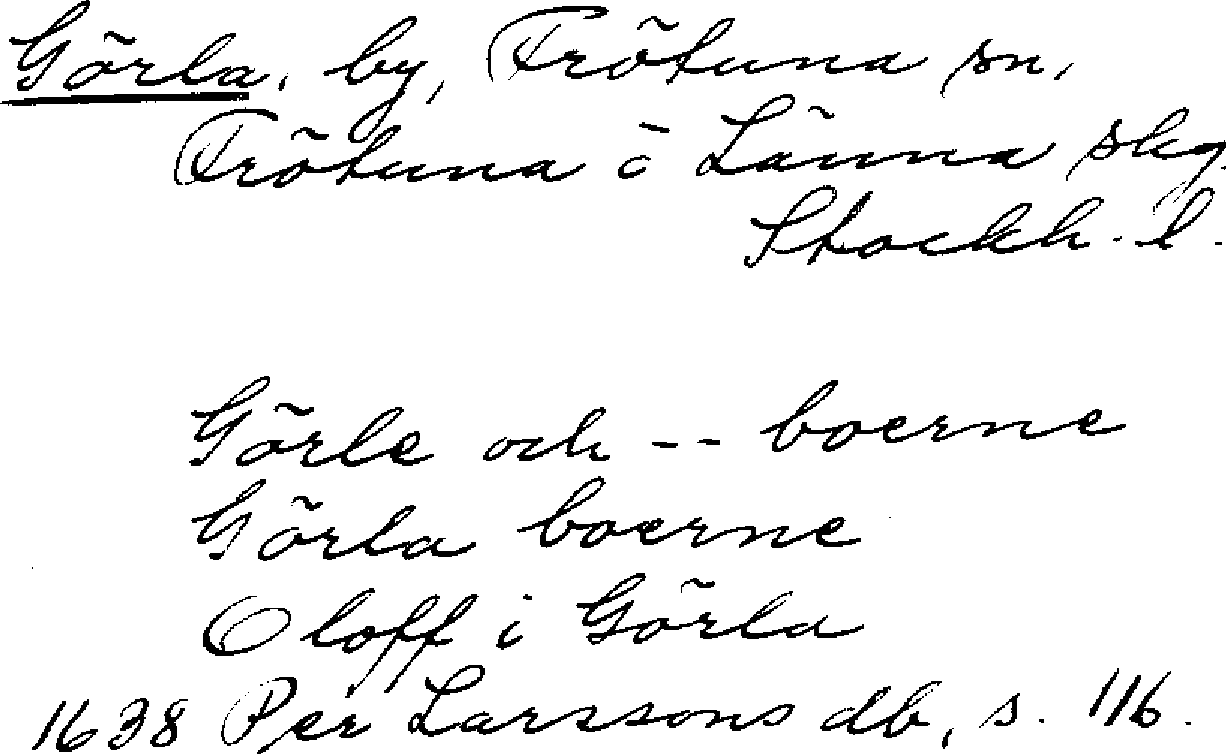 Görla, by, Frötuna sn,
Frötuna o Länna skg.
Stockh. l.
Görle och -- boerne
Görla boerne
Oloff i Görla
1638 Per Larssons db, s. 116.